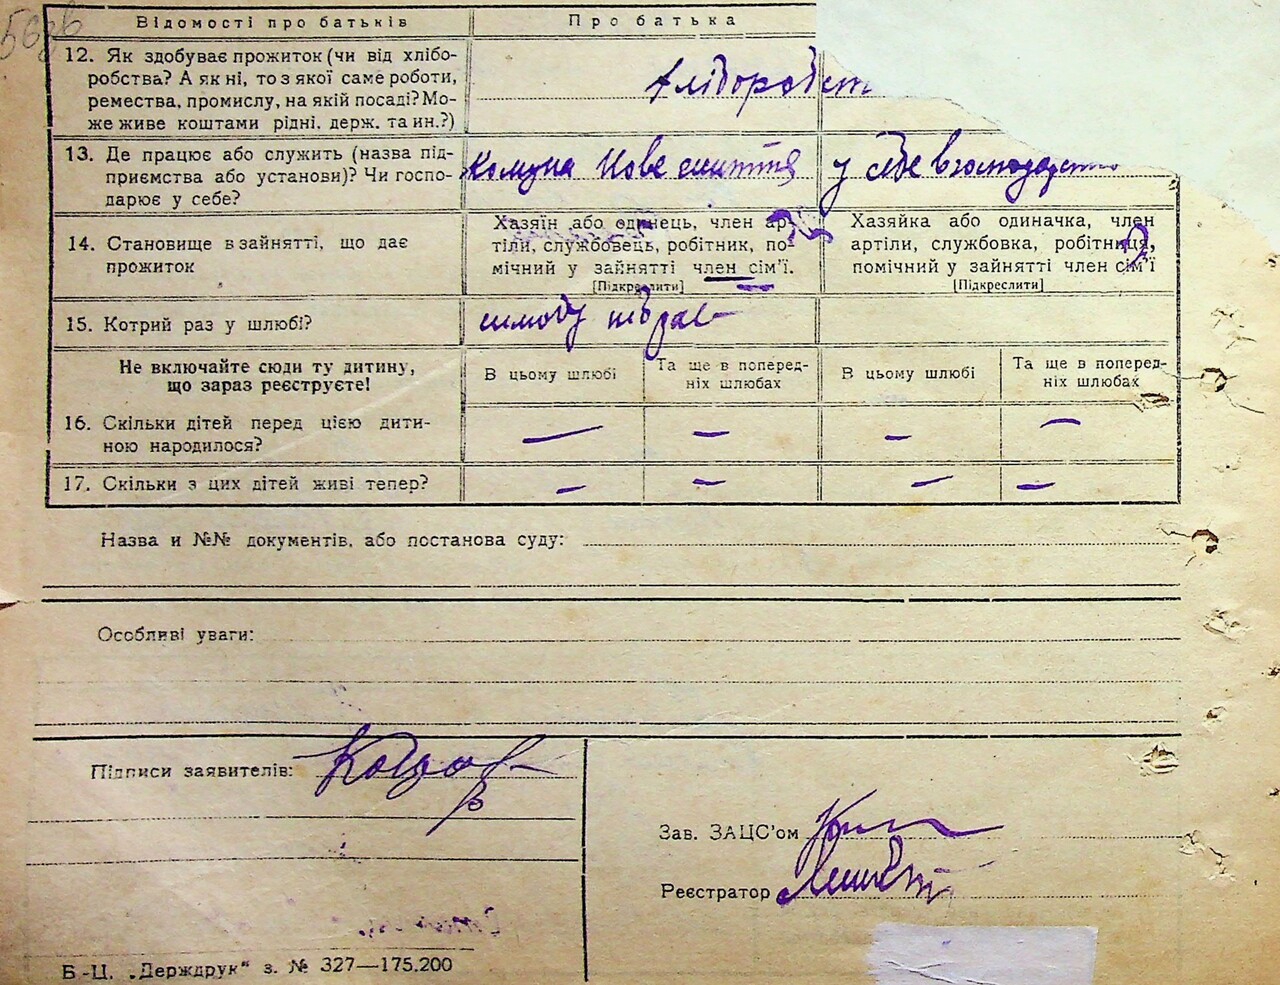 563в
Відомості про батьків
Про батька
12. Як здобуває прожиток (чи від хлібо-
робства? А як ні, то з якої саме роботи,
ремества, промислу, на якій посаді? Мо-
же живе коштами рідні, держ. та ин.?)
хліборобст
13. Де працює або служить (назва під-
приємства або установи)? Чи госпо-
дарює у себе?
Комуна Нове життя
у себе в господарство
14. Становище в зайнятті, що дає
прожиток
Хазяїн або одинець, член ар-
тіли, службовець, робітник, по-
мічний у зайнятті член сім’ї.
[Підкреслити]
Хазяйка або одиначка, член
артіли, службовка, робітниця,
помічний у зайнятті член сім’ї
[Підкреслити]
15. Котрий раз у шлюбі?
Не включайте сюди ту дитину,
що зараз реєструєте!
В цьому шлюбі
Та ще в поперед-
ніх шлюбах
В цьому шлюбі
Та ще в поперед-
ніх шлюбах
16. Скільки дітей перед цією дити-
ною народилося?
— — — —
17. Скільки з цих дітей живі тепер?
— — — —
Назва и №№ документів, або постанова суду:
Особливі уваги:
Підписи заявителів:
Зав. ЗАЦС’ом
Реєстратор
Б.-Ц. „Держдрук“ з. № 327—175.200